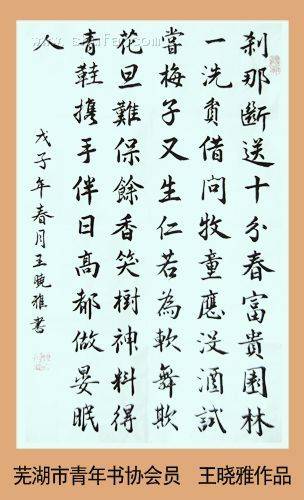 刹那斷送十分春富貴園林
一洗貧借問牧童應没酒試
嘗梅子又生仁若為軟舞欺
花旦難保餘香笑樹神料得
青鞋携手伴日高都做晏眠
人
戊子年春月王曉雅書
芜湖市青年书协会员 王晓雅作品